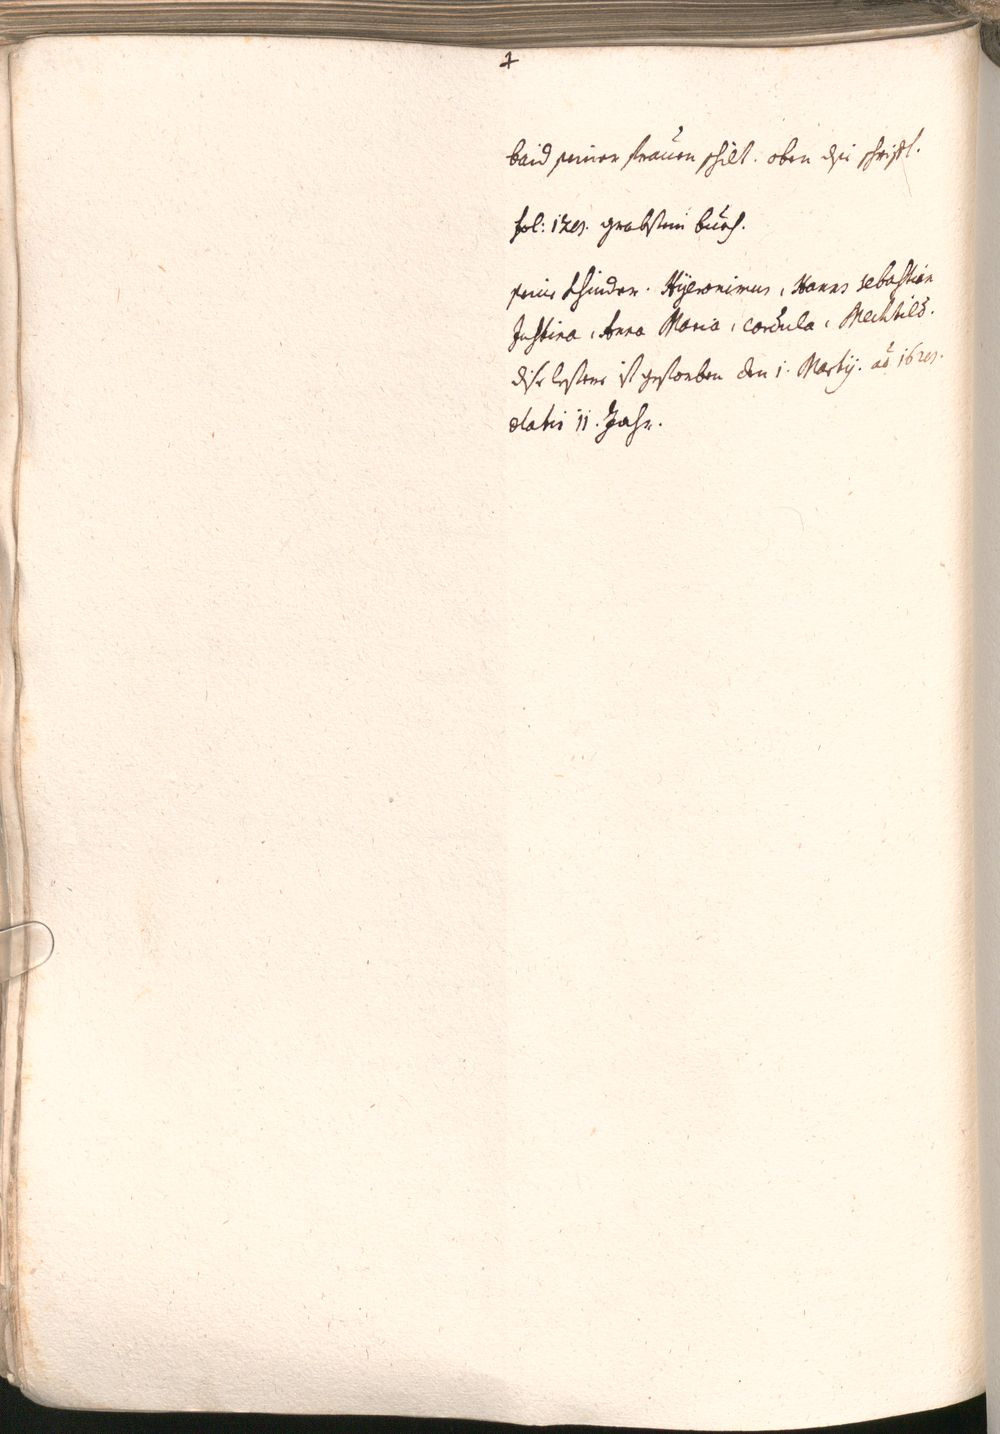 baid seiner frauen schilt. oben die schrifft.
fol: 129. grabstein buech.
seine Khinder. Hÿeronimus, Hanns sebastian
Justina, Anna Maria, Cordula, Mechtild.
dise lestere ist gestorben den 1. Martÿ. aõ 1629.
etatis 11. Jahr.